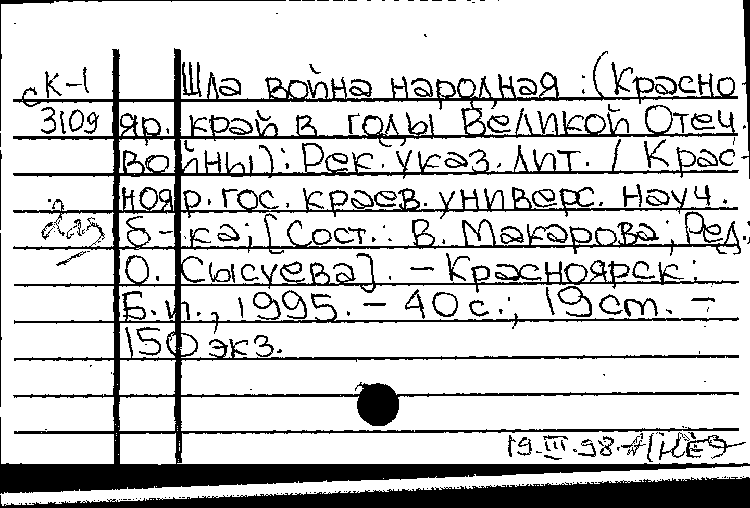 сК-1 Шла война народная : (Красно-
3109 яр. край в годы Великой Отеч.
войны) : Рек. указ. лит. / Крас-
нояр. гос. краев. универс. науч.
б-ка; [Сост.: В. Макарова; Ред.:
О. Сысуева]. – Красноярск :
Б.и., 1995. – 40 с.; 19 cm. –
150 экз.
19.III.98.